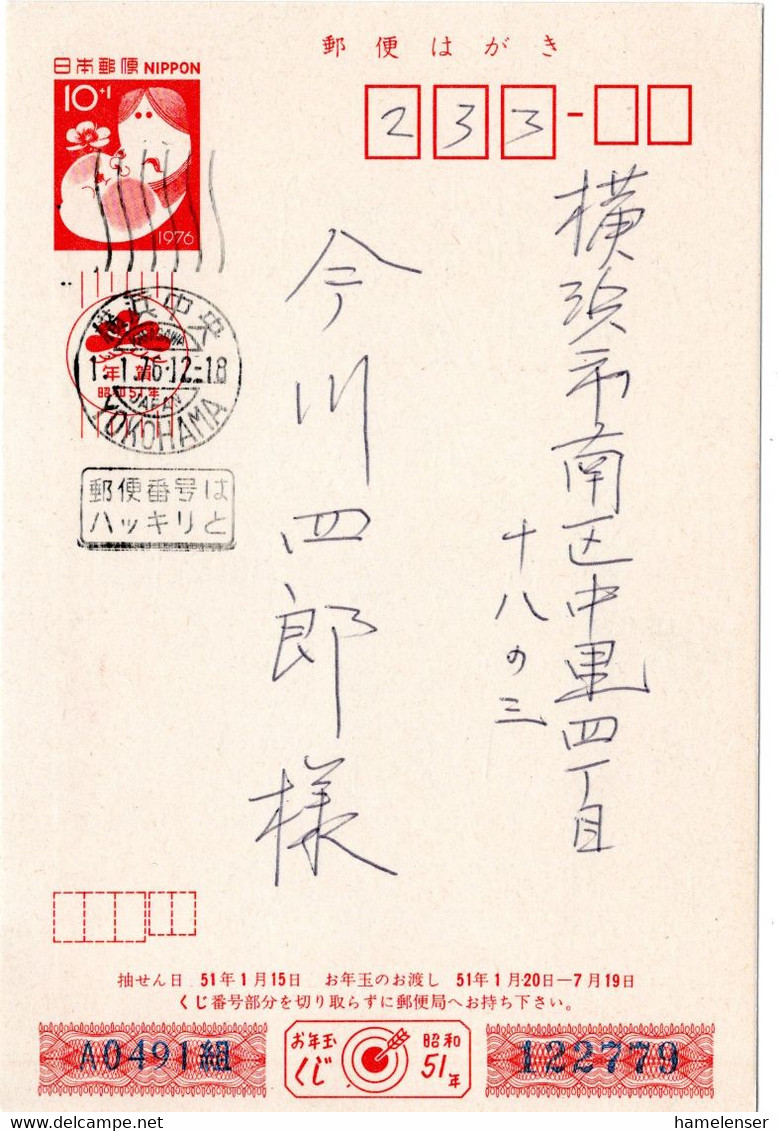 郵便はがき
日本郵便 NIPPON
10+1
1976
233
横浜市南区中里四丁目
十八の三
今川四郎様
横浜中央
年賀
1.1.76.12-18
昭和51年
JAPAN
YOKOHAMA
郵便番号は
ハッキリと
抽せん日 51年1月15日 お年玉のお渡し 51年1月20日—7月19日
くじ番号部分を切り取らずに郵便局へお持ち下さい。
A0491組
お年玉
くじ
昭和
51年
122779
hamelenser